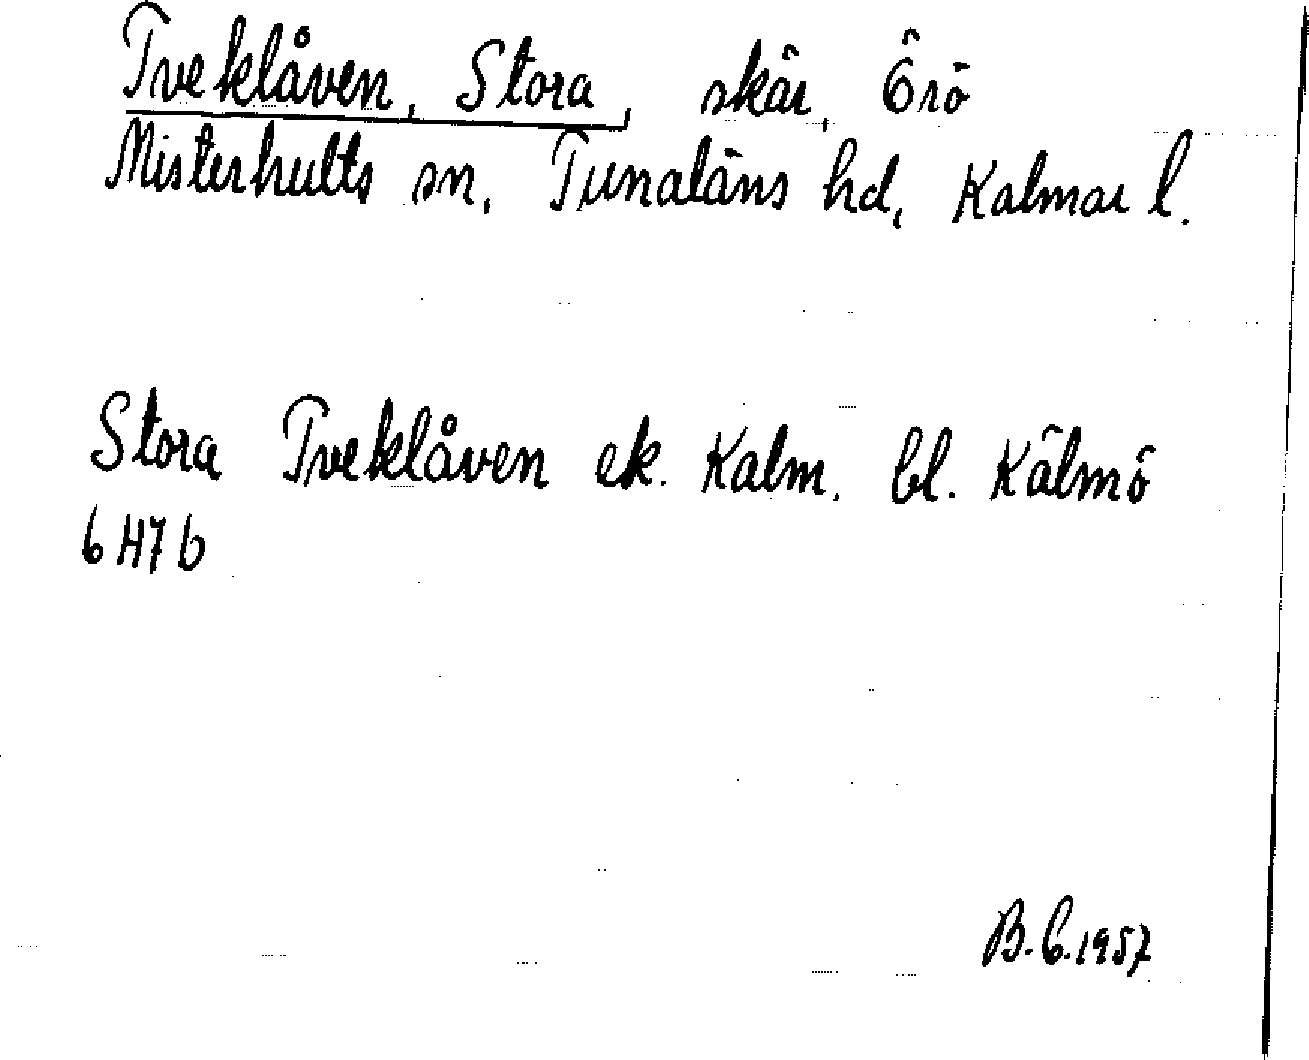 Tveklåven, Stora, skär, Örö
Misterhults sn, Tunaläns hd, Kalmar l.
Stora Tveklåven ek. Kalm. bl. Kälmö
6 H7 b
B.C.1957